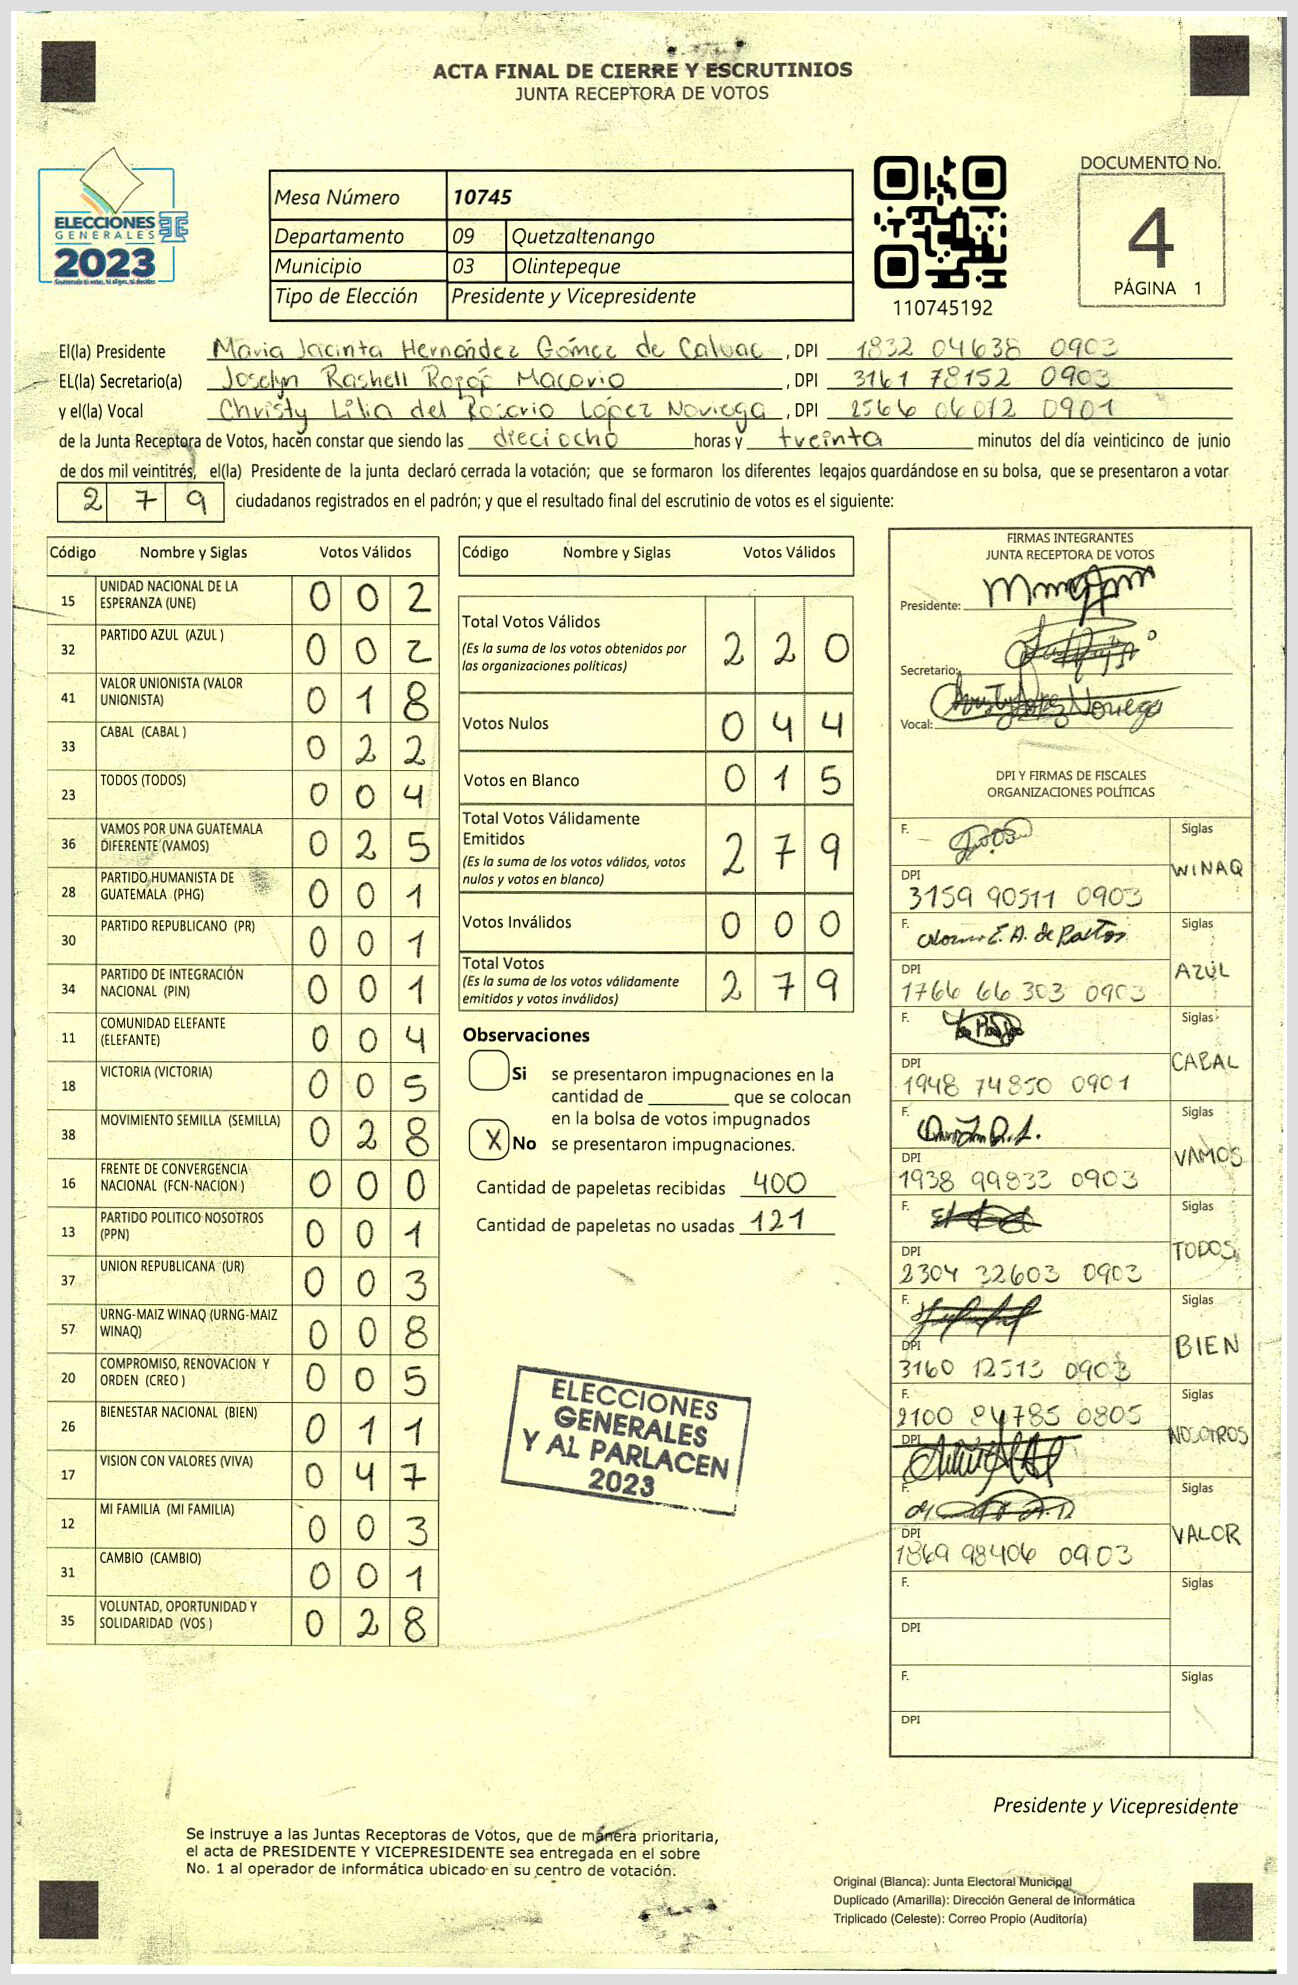 ACTA FINAL DE CIERRE Y ESCRUTINIOS
JUNTA RECEPTORA DE VOTOS
ELECCIONES
GENERALES
2023
Mesa Número 10745
Departamento 09 Quetzaltenango
Municipio 03 Olintepeque
Tipo de Elección Presidente y Vicepresidente
110745192
DOCUMENTO No.
4
PÁGINA 1
El(la) Presidente Maria Jacinta Hernández Gómez de Calvac, DPI 1832 04638 0903
EL(la) Secretario(a) Joselyn Rashell Macario, DPI 3161 78152 0903
y el(la) Vocal Christy Lilia del Rosario López Noriega, DPI 2566 06012 0901
de la Junta Receptora de Votos, hacen constar que siendo las dieciocho horas y treinta minutos del día veinticinco de junio
de dos mil veintitrés, el(la) Presidente de la junta declaró cerrada la votación; que se formaron los diferentes legajos guardándose en su bolsa, que se presentaron a votar
279 ciudadanos registrados en el padrón; y que el resultado final del escrutinio de votos es el siguiente:
Código Nombre y Siglas Votos Válidos
15 UNIDAD NACIONAL DE LA ESPERANZA (UNE) 002
32 PARTIDO AZUL (AZUL ) 002
41 VALOR UNIONISTA (VALOR UNIONISTA) 018
33 CABAL (CABAL ) 022
23 TODOS (TODOS) 004
36 VAMOS POR UNA GUATEMALA DIFERENTE (VAMOS) 025
28 PARTIDO HUMANISTA DE GUATEMALA (PHG) 001
30 PARTIDO REPUBLICANO (PR) 001
34 PARTIDO DE INTEGRACIÓN NACIONAL (PIN) 001
11 COMUNIDAD ELEFANTE (ELEFANTE) 004
18 VICTORIA (VICTORIA) 005
38 MOVIMIENTO SEMILLA (SEMILLA) 028
16 FRENTE DE CONVERGENCIA NACIONAL (FCN-NACION ) 000
13 PARTIDO POLITICO NOSOTROS (PPN) 001
37 UNION REPUBLICANA (UR) 003
57 URNG-MAIZ WINAQ (URNG-MAIZ WINAQ) 008
20 COMPROMISO, RENOVACION Y ORDEN (CREO ) 005
26 BIENESTAR NACIONAL (BIEN) 011
17 VISION CON VALORES (VIVA) 047
12 MI FAMILIA (MI FAMILIA) 003
31 CAMBIO (CAMBIO) 001
35 VOLUNTAD, OPORTUNIDAD Y SOLIDARIDAD (VOS ) 028
Código Nombre y Siglas Votos Válidos
Total Votos Válidos 220
(Es la suma de los votos obtenidos por
las organizaciones políticas)
Votos Nulos 044
Votos en Blanco 015
Total Votos Válidamente
Emitidos 279
(Es la suma de los votos válidos, votos
nulos y votos en blanco)
Votos Inválidos 000
Total Votos 279
(Es la suma de los votos válidamente
emitidos y votos inválidos)
Observaciones
Si se presentaron impugnaciones en la
cantidad de ________ que se colocan
en la bolsa de votos impugnados
X No se presentaron impugnaciones.
Cantidad de papeletas recibidas 400
Cantidad de papeletas no usadas 121
ELECCIONES
GENERALES
Y AL PARLACEN
2023
FIRMAS INTEGRANTES
JUNTA RECEPTORA DE VOTOS
Presidente:
Secretario:
Vocal: Noriega
DPI Y FIRMAS DE FISCALES
ORGANIZACIONES POLÍTICAS
F. Siglas
DPI WINAQ
3159 90511 0903
F. E. A. de Siglas
DPI AZUL
1766 66 303 0903
F. Siglas
DPI CABAL
1948 74850 0901
F. Siglas
DPI VAMOS
1938 99833 0903
F. Siglas
DPI TODOS
2304 32603 0903
F. Siglas
DPI BIEN
3160 12513 0903
F. Siglas
2100 84785 0805
DPI NOSOTROS
F. Siglas
DPI VALOR
1869 98406 0903
F. Siglas
DPI
F. Siglas
DPI
Presidente y Vicepresidente
Se instruye a las Juntas Receptoras de Votos, que de manera prioritaria,
el acta de PRESIDENTE Y VICEPRESIDENTE sea entregada en el sobre
No. 1 al operador de informática ubicado en su centro de votación.
Original (Blanca): Junta Electoral Municipal
Duplicado (Amarilla): Dirección General de Informática
Triplicado (Celeste): Correo Propio (Auditoría)